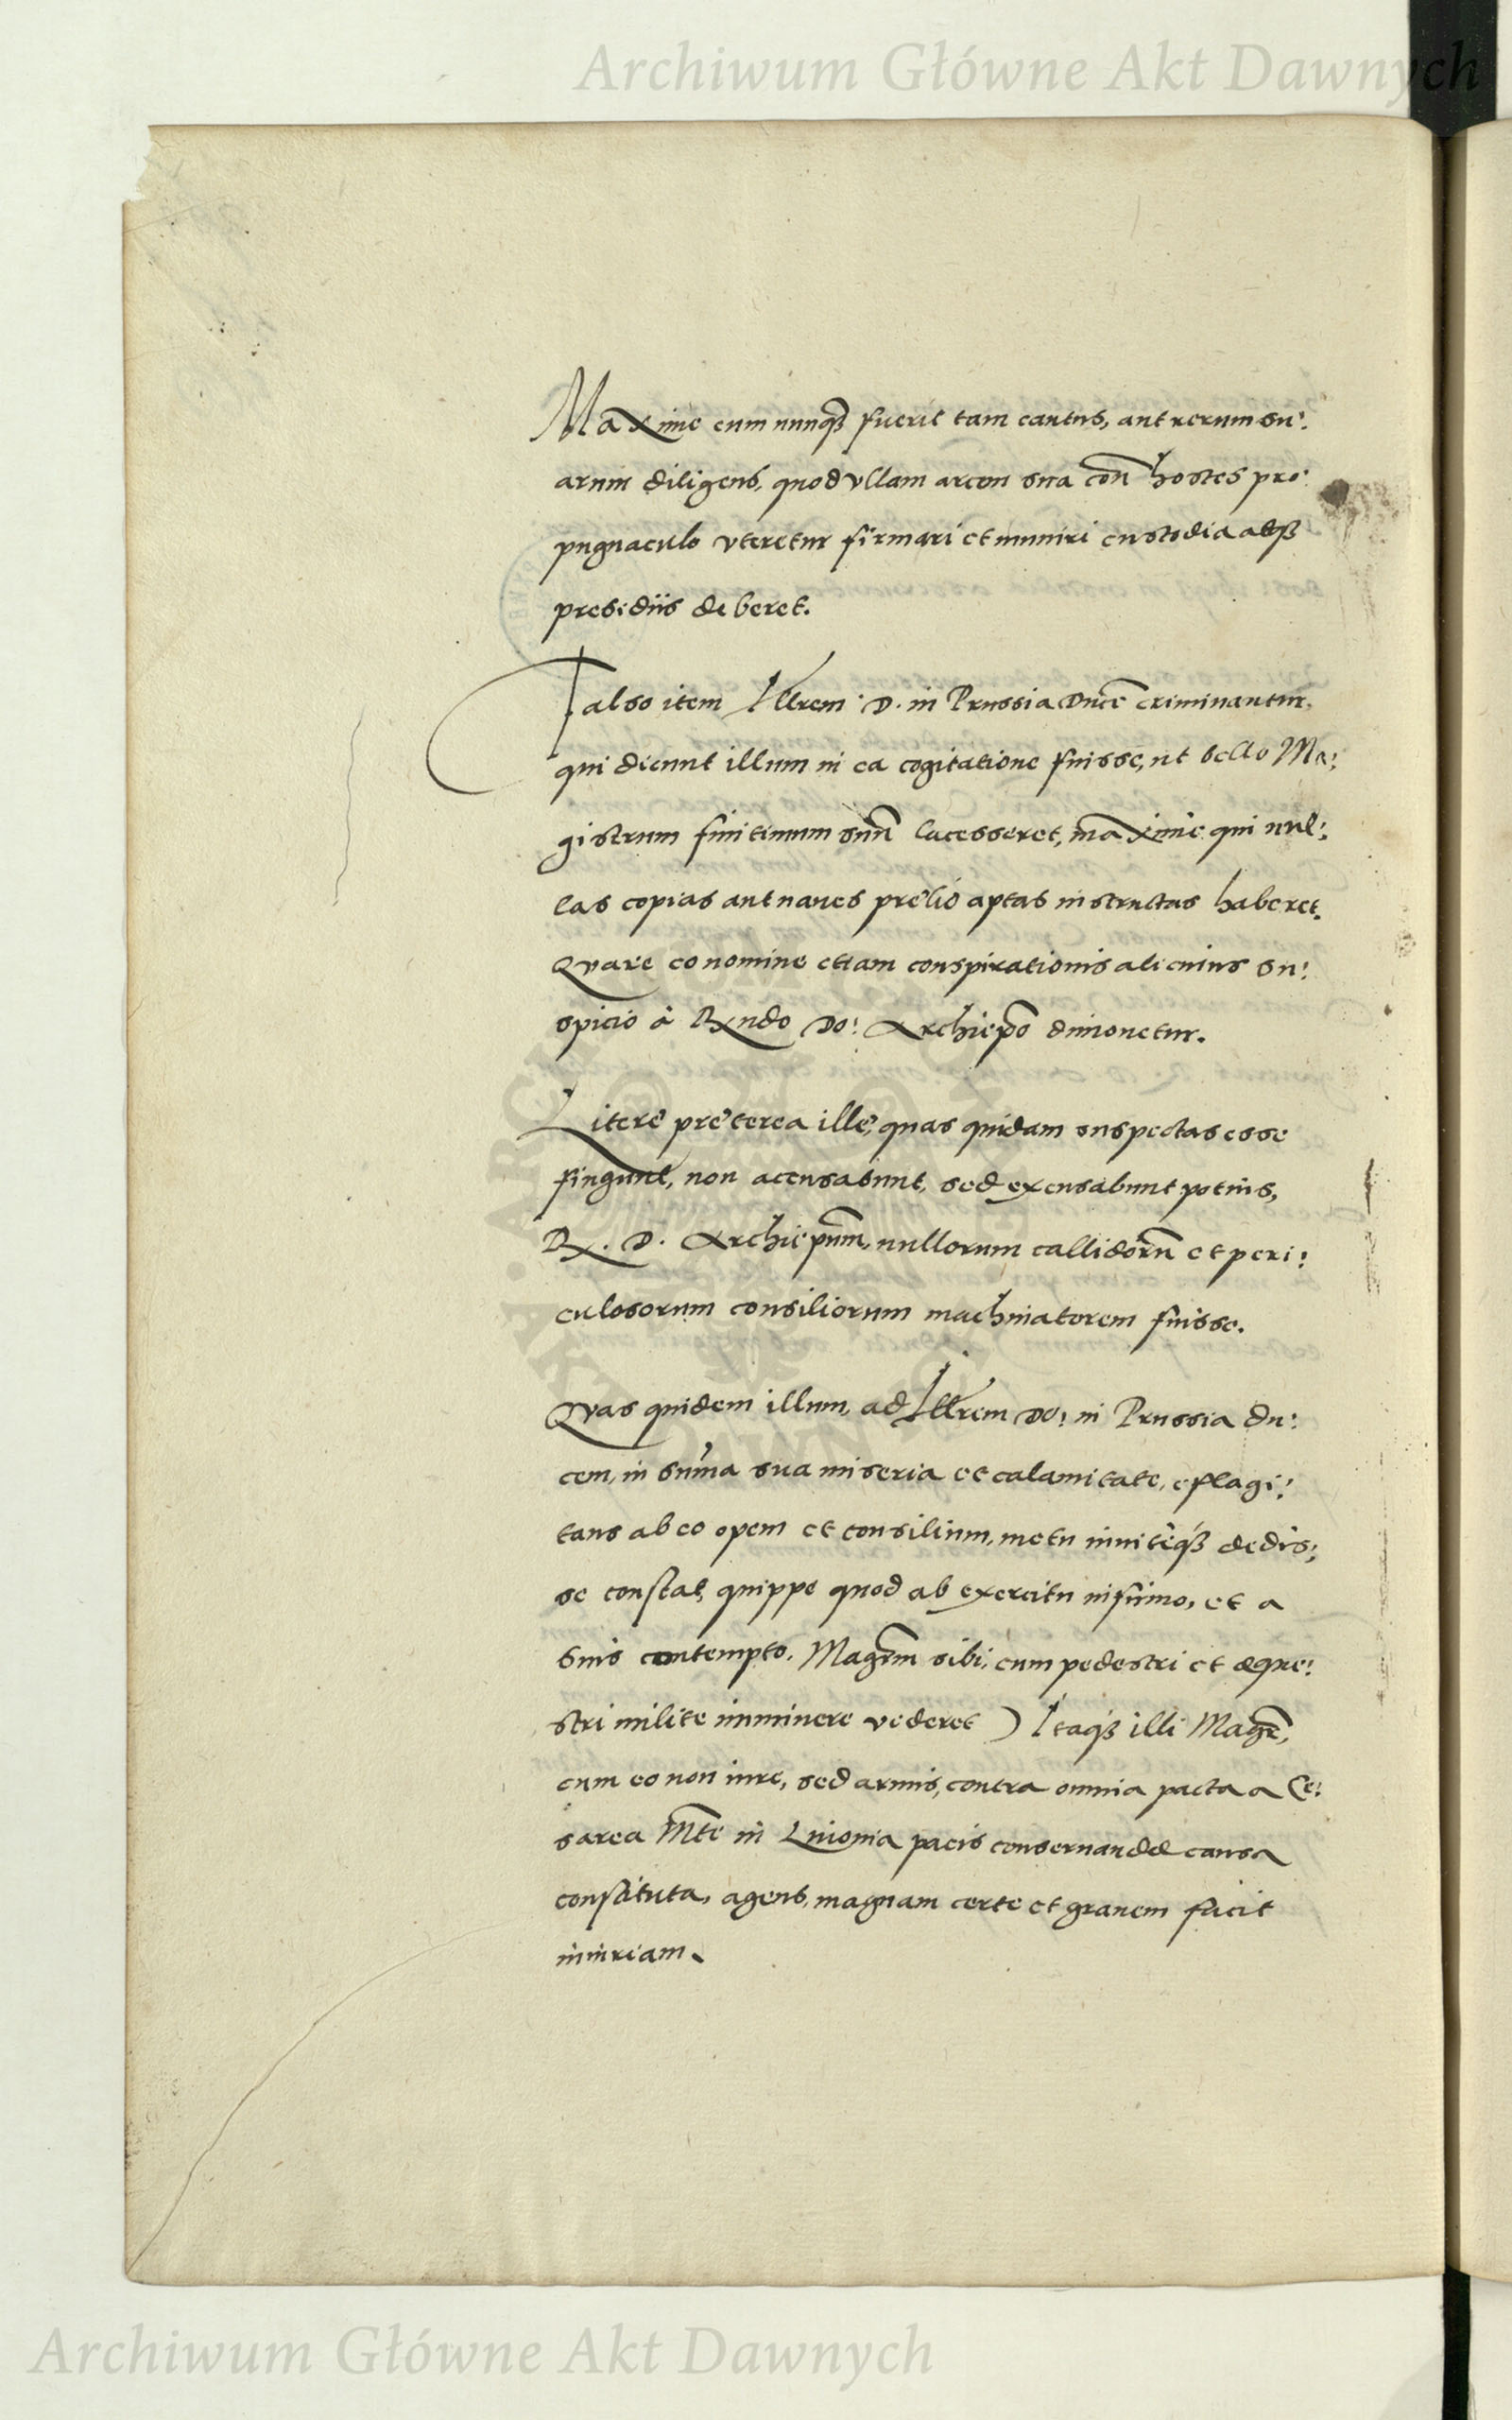 Archiwum Główne Akt Dawnych
Maxime cum nunqȝ fuerit tam cautus, aut rerum su:
arum diligens, quod vllam arcem sua con̄ hostes pro:
pugnaculo vteretur firmari et muniri custodia atqȝ
presidiis deberet.
Falso item Illrem D. in Prussia Ducē criminantur,
qui dicunt illum in ea cogitatione fuisse, ut bello Ma:
gistrum finitimum suū lacesseret, maxime qui nul:
las copias aut naues prelio aptas instructas haberet.
Quare eo nomine etiam conspirationis alicuius su:
spicio à Rxndo Do: Archiepo dimouetur.
Litere preterea ille, quas quidam suspectas esse
fingunt, non accusabunt, sed excusabunt potius,
Rx. D. Archiepum, nullorum callidorū et peri:
culosorum consiliorum machinatorem fuisse.
Quas quidem illum, ad Illrem Do: in Prussia du:
cem, in sum̄a sua miseria et calamitate, efflagi:
tans ab eo opem et consilium, metu inuitèqȝ dedis:
se constat, quippe quod ab exercitu infimo, et a
suis contempto, Magrm sibi, cum pedestri et æque:
stri milite imminere vederet) Itaqȝ illi Magr̄,
cum eo non iure, sed armis, contra omnia pacta a Ce:
sarea Mte in Liuonia pacis conseruandæ causa
constituta, agens, magnam certe et grauem fecit
iniuriam.
Archiwum Główne Akt Dawnych